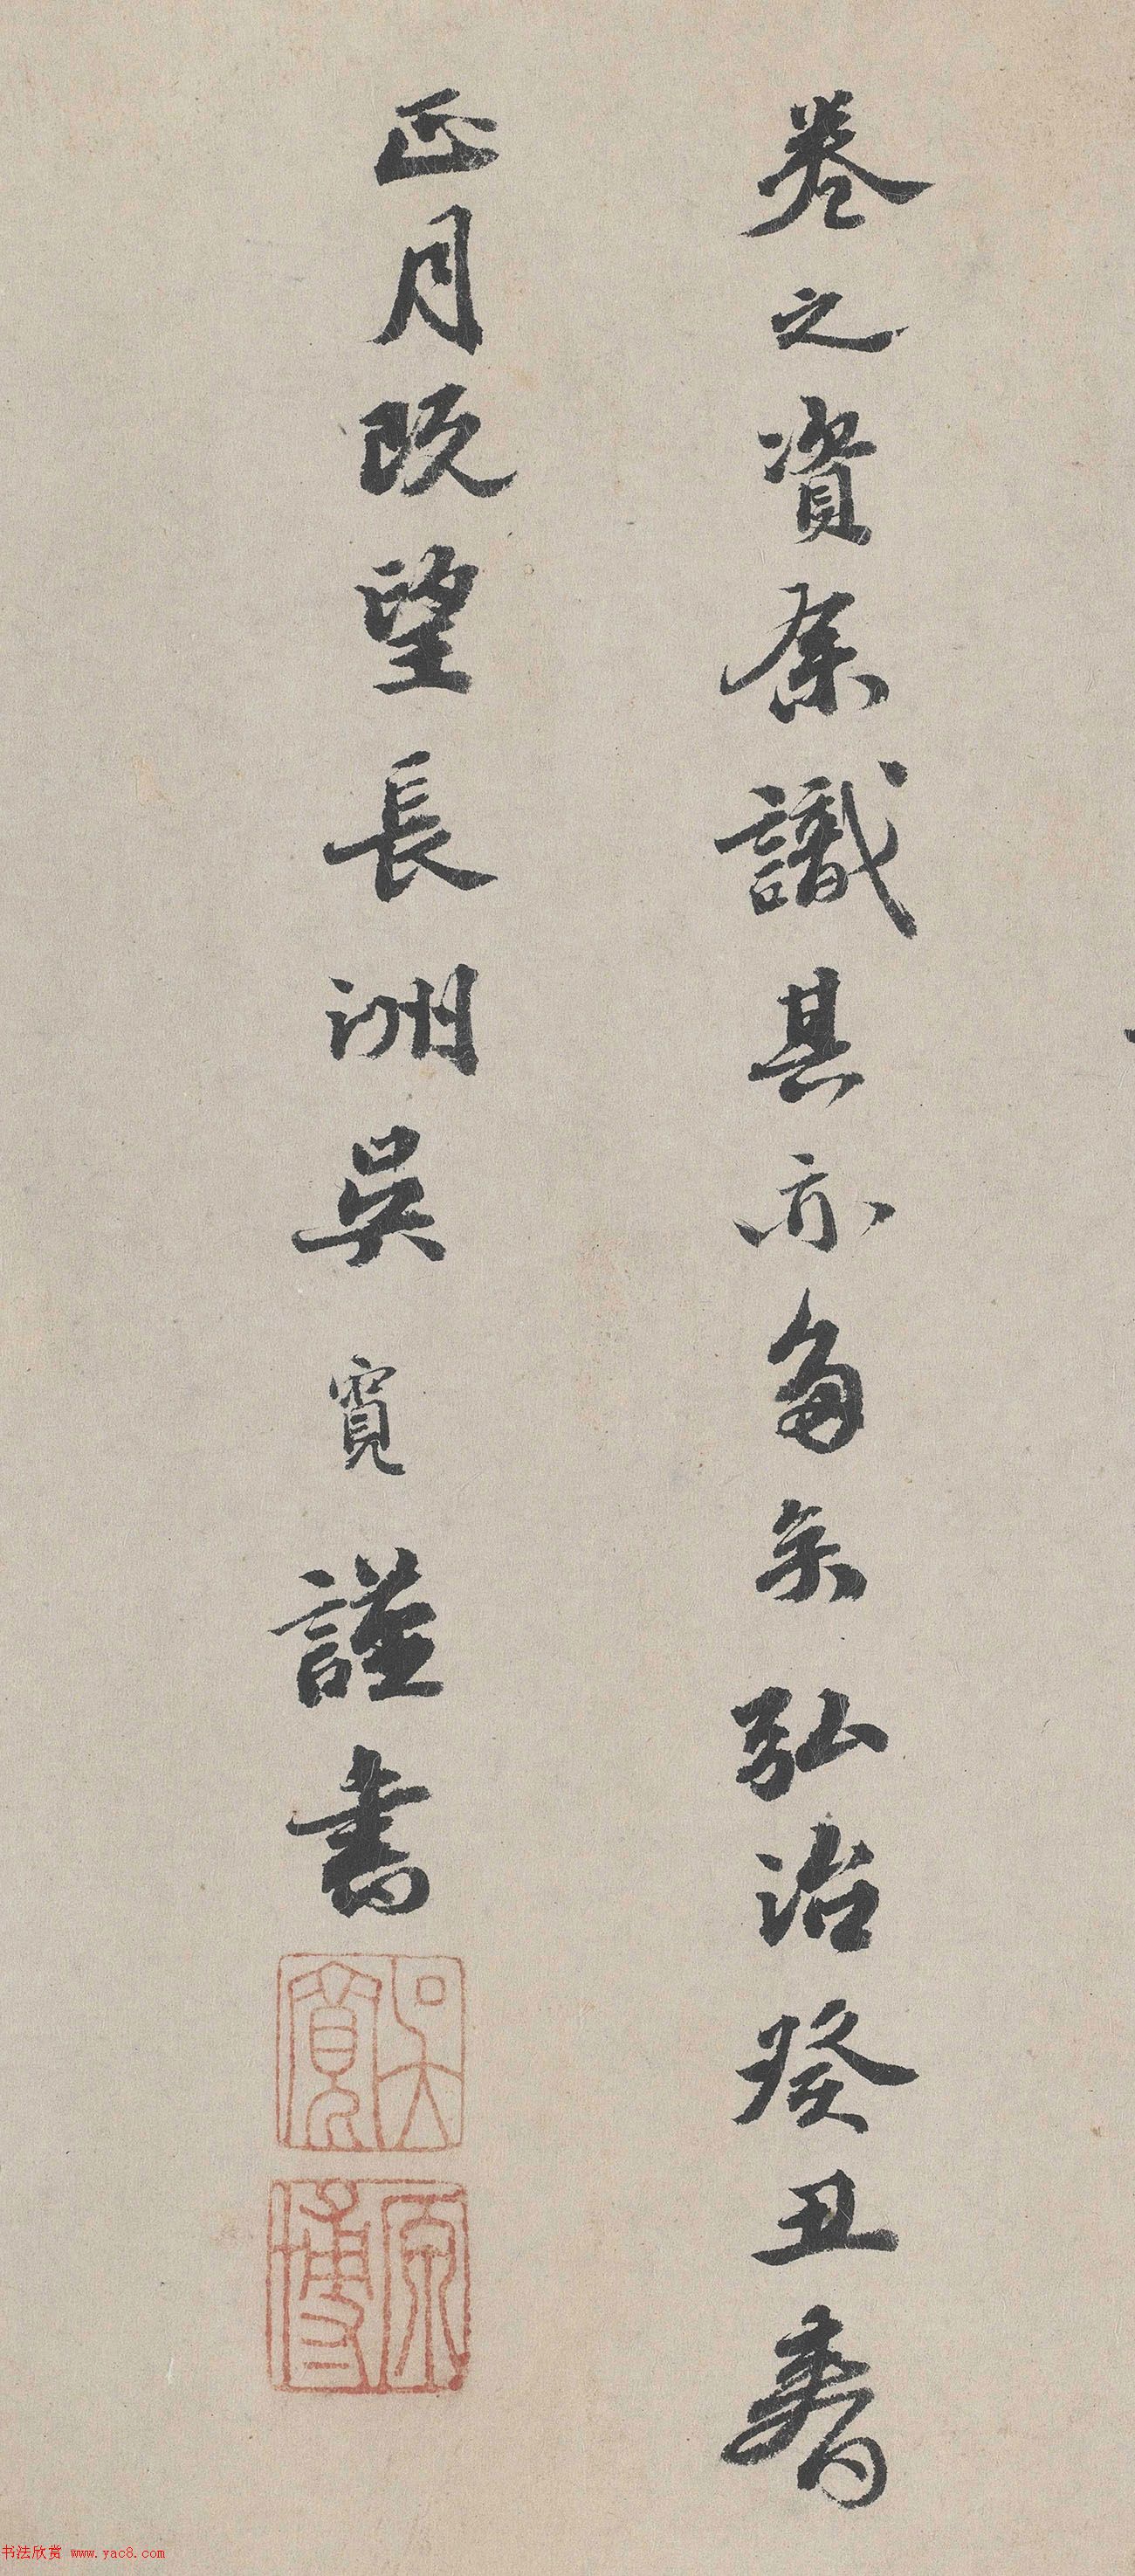 卷之資余識其亦多矣弘治癸丑春
正月既望長洲吳寬謹書
吳寬
原博
书法欣赏 www.yac8.com